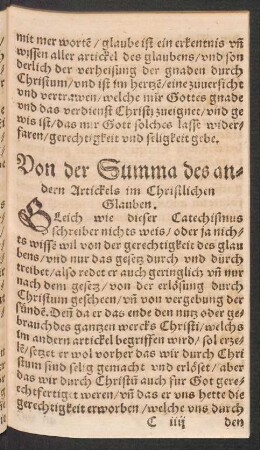 mit mer wortẽ/ glaube ist ein erkentnis vñ
wissen aller artickel des glaubens/ vnd son
derlich der verheisung der gnaden durch
Christum/ vnd ist im hertzẽ/ eine zuuersicht
vnd vertrawen/ welche mir Gottes gnade
vnd das verdienst Christi zueignet/ vnd ge
wis ist/ das mir Gott solches lasse wider-
faren/ gerechtigkeit vnd seligkeit gebe.
Von der Summa des an-
dern Artickels im Christlichen
Glauben.
GLeich wie dieser Catechismus
schreiber nichts weis/ oder ja nich-
ts wissẽ wil von der gerechtigkeit des glau
bens/ vnd nur das gesetz durch vnd durch
treibet/ also redet er auch geringlich vñ nur
nach dem gesetz/ von der erlösung durch
Christum gescheen/ vñ von vergebung der
sünde. Deñ da er das ende den nutz oder ge-
brauch des gantzen wercks Christi/ welchs
im andern artickel begriffen wird/ sol erze-
le/ setzet er wol vorher das wir durch Chri
stum sind selig gemacht vnd erlöset/ aber
das wir durch Christũ auch für Got gere-
chtfertiget weren/ vñ das er vns hette die
gerechtigkeit erworben/ welche vns durch
C iiij den